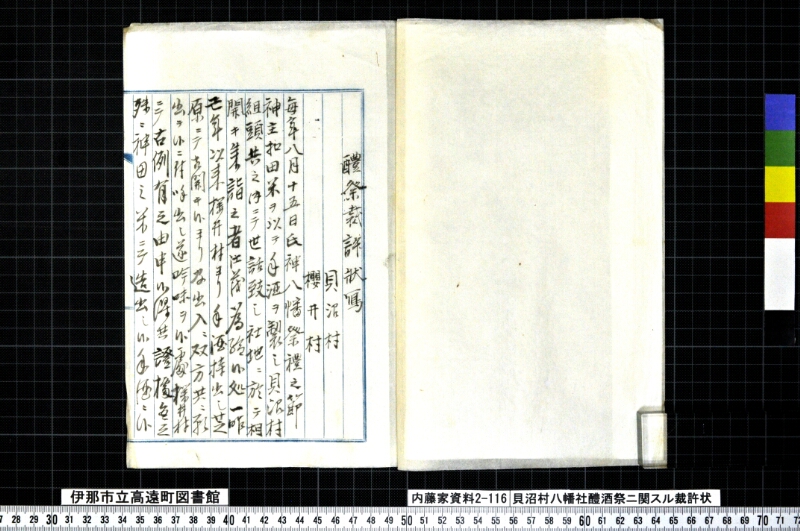 醴祭裁許状写
貝沼村
櫻井村
毎年八月十五日氏神八幡祭禮之節
神主扣田米ヲ以テ手酒ヲ製シ貝沼村
組頭共之沙ニテ世話致シ社地ニ於テ相
開キ参詣之者江 為給候処一昨
亡年以来櫻井村ヨリ手酒持出シ芝
原ニテ相開キ候ヨリ 出入ニ双方共ニ
出ヲ候ニ付呼出シ遂吟味ヲ候處櫻井村
ニテ古例有之由申候得共證拠無之
殊ニ神田之米ニテ造出シ候手酒ニ候
伊那市立高遠町図書館
内藤家資料2-116
貝沼村八幡社醴酒祭ニ関スル裁許状
27 28 29 30 31 32 33 34 35 36 37 38 39 40 41 42 43 44 45 46 47 48 49 50 51 52 53 54 55 56 57 58 59 60 61 62 63 64 65 66 67 68 69 70 71